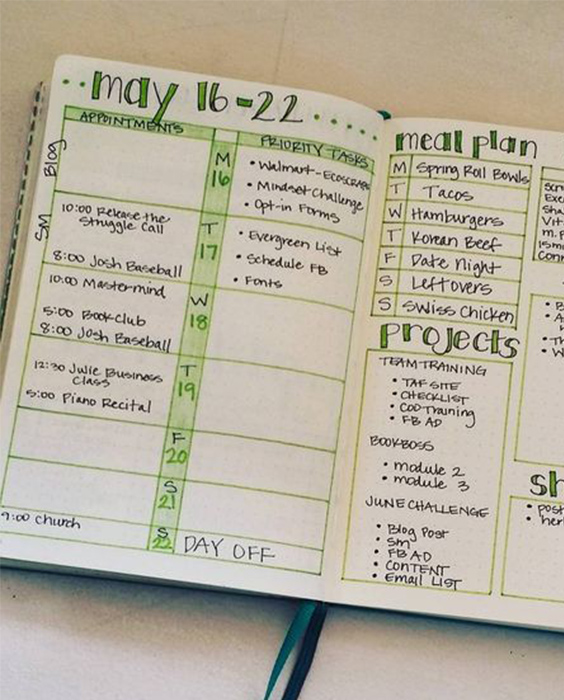 may 16-22
APPOINTMENTS
PRIORITY TASKS
Blog
SM
M
16
• Walmart-Ecoscraps
• Mindset Challenge
• Opt-in Forms
10:00 Release the
Struggle Call
8:00 Josh Baseball
T
17
• Evergreen List
• Schedule FB
• Fonts
10:00 Mastermind
5:00 Book club
8:00 Josh Baseball
W
18
12:30 Julie Business
Class
5:00 Piano Recital
T
19
F
20
S
21
9:00 church
S
22
DAY OFF
meal plan
M Spring Roll Bowls
T Tacos
W Hamburgers
T Korean Beef
F Date Night
S Leftovers
S Swiss Chicken
projects
TEAM TRAINING
• TAF SITE
• CHECKLIST
• COD Training
• FB AD
BOOKBOSS
• module 2
• module 3
JUNE CHALLENGE
• Blog Post
• Sm
• FB AD
• CONTENT
• Email LIST
sh
• post
• her